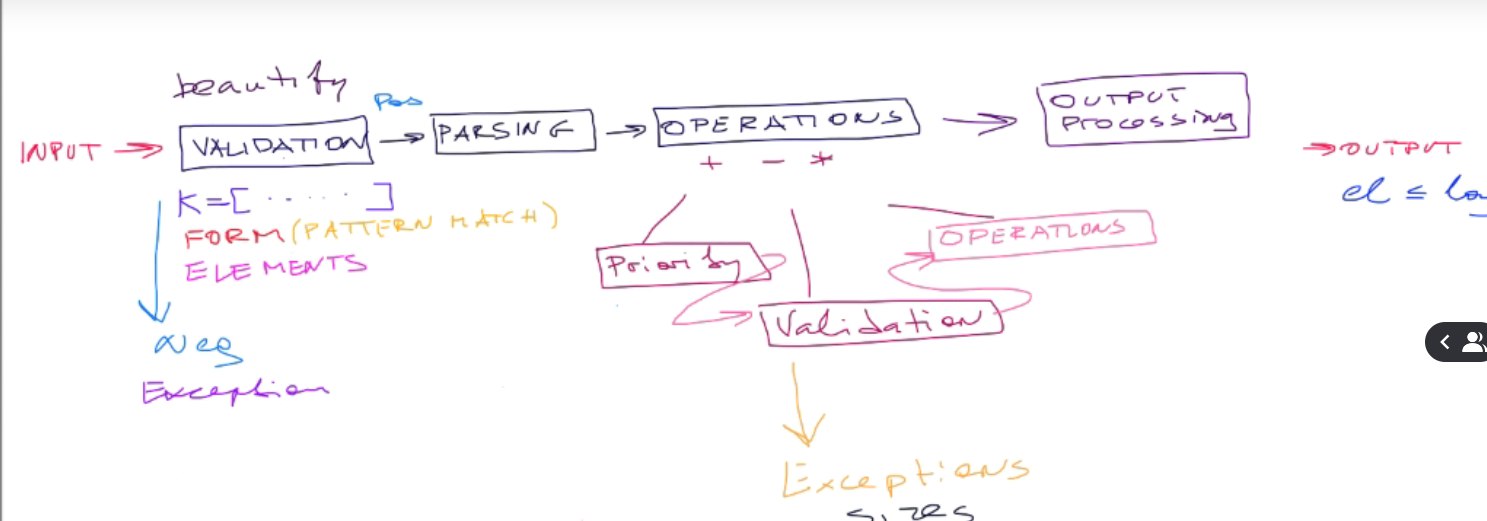 beautify
Pos
INPUT → VALIDATION → PARSING → OPERATIONS → OUTPUT
Processing
+ - *
→ OUTPUT
K=[ ..... ]
el ≤
FORM (PATTERN MATCH)
ELEMENTS
OPERATIONS
Priority
Validation
Neg
Exception
Exceptions
sizes